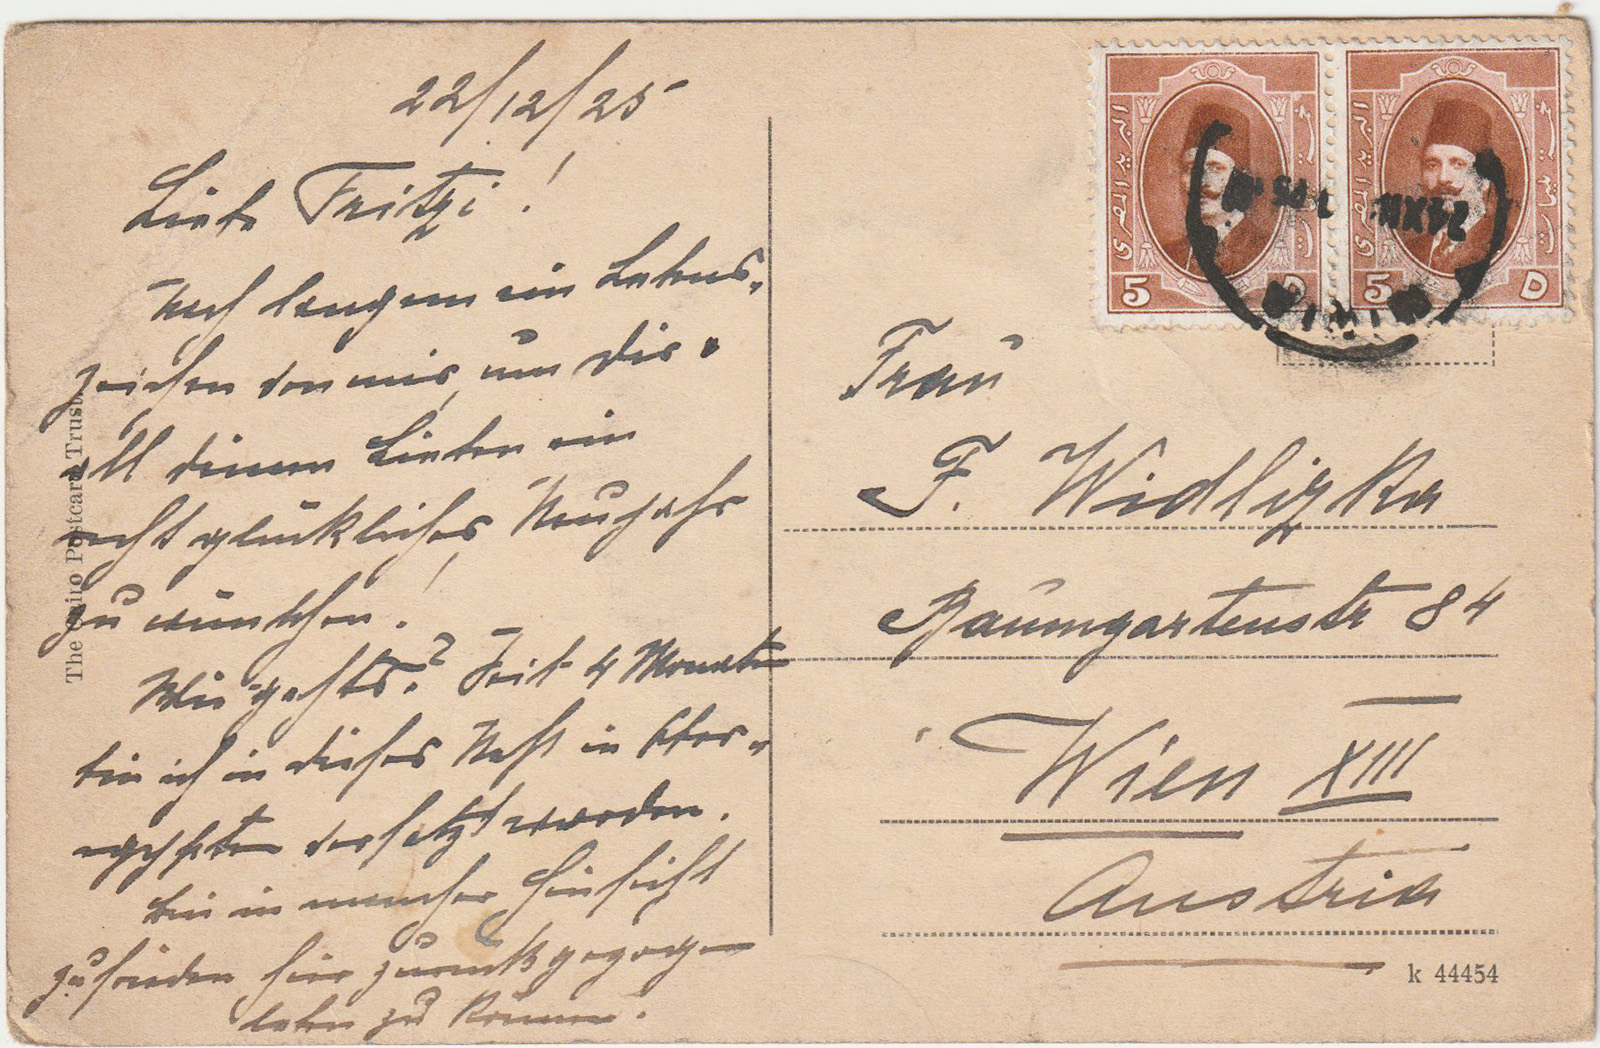 22/12/25
Liebe Fritzi!
Nach langem ein Lebens-
zeichen von mir, um dir &
all deinen Lieben ein
recht glückliches Neujahr
zu wünschen!
Wie geht's? Seit 4 Monaten
bin ich in dieses Nest in Ober-
egypten versetzt worden.
bin in mancher Hinsicht
zufrieden hier zurückgezogen
leben zu können.
The Cairo Postcard Trust
البريد المصرى
5
البريد المصرى
5
24 XII
MINIA
Frau
F. Widlizka
Baumgartenstr 84
Wien XIII
Austria
k 44454